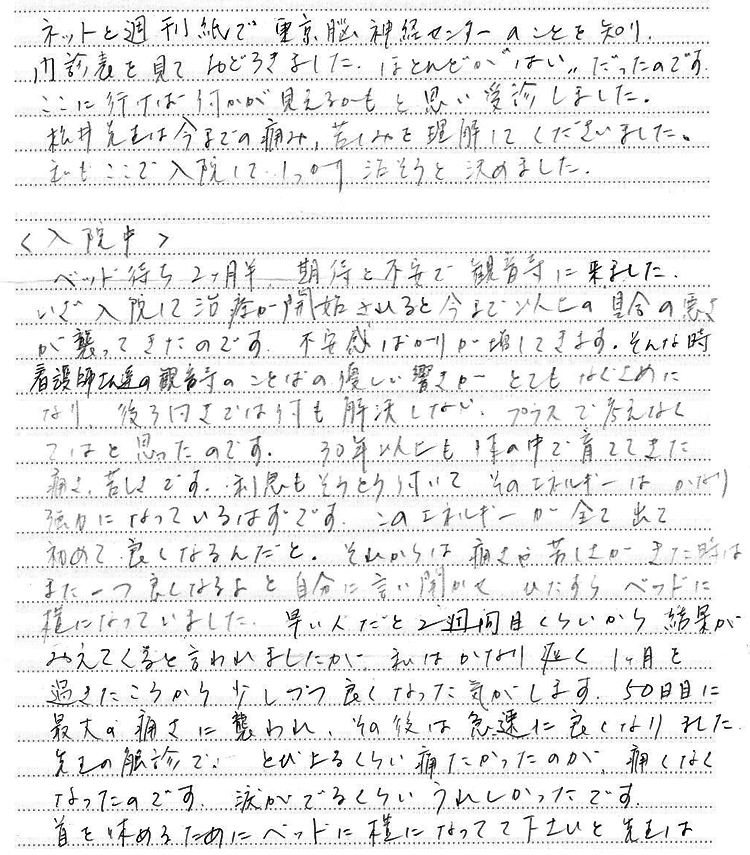 ネットと週刊紙で東京脳神経センターのことを知り、
問診表を見ておどろきました。ほとんどが"はい"だったのです。
ここに行けば何かが見えるかもと思い受診しました。
松井先生は今までの痛み、苦しみを理解してくださいました。
私もここで入院してしっかり治そうと決めました。
<入院中>
ベッド待ち2ヶ月半、期待と不安で観音寺に来ました。
いざ入院して治療が開始されると今まで以上の具合の悪さ
が襲ってきたのです。不安感ばかりが増してきます。そんな時
看護師さん達の観音寺のことばの優しい響きがとてもなぐさめに
なり 後ろ向きでは何も解決しない、プラスで考えなく
てはと思ったのです。 30年以上も体の中で育ててきた
痛さ、苦しさです。利息もそうとう付いて そのエネルギーはかなり
強力になっているはずです。このエネルギーが全て出て
初めて良くなるんだと。それからは痛さや苦しさがきた時は
また一つ良くなるよと自分に言い聞かせ ひたすらベッドに
横になっていました。早い人だと2週間目くらいから結果が
みえてくると言われましたが、私はかなり遅く1ヶ月を
過ぎたころから少しづつ良くなった気がします。50日目に
最大の痛さに襲われ、その後は急速に良くなりました。
先生の触診で、とび上るくらい痛たかったのが、痛くなく
なったのです。涙がでるくらいうれしかったです。
首を休めるためにベッドに横になってて下さいと先生は